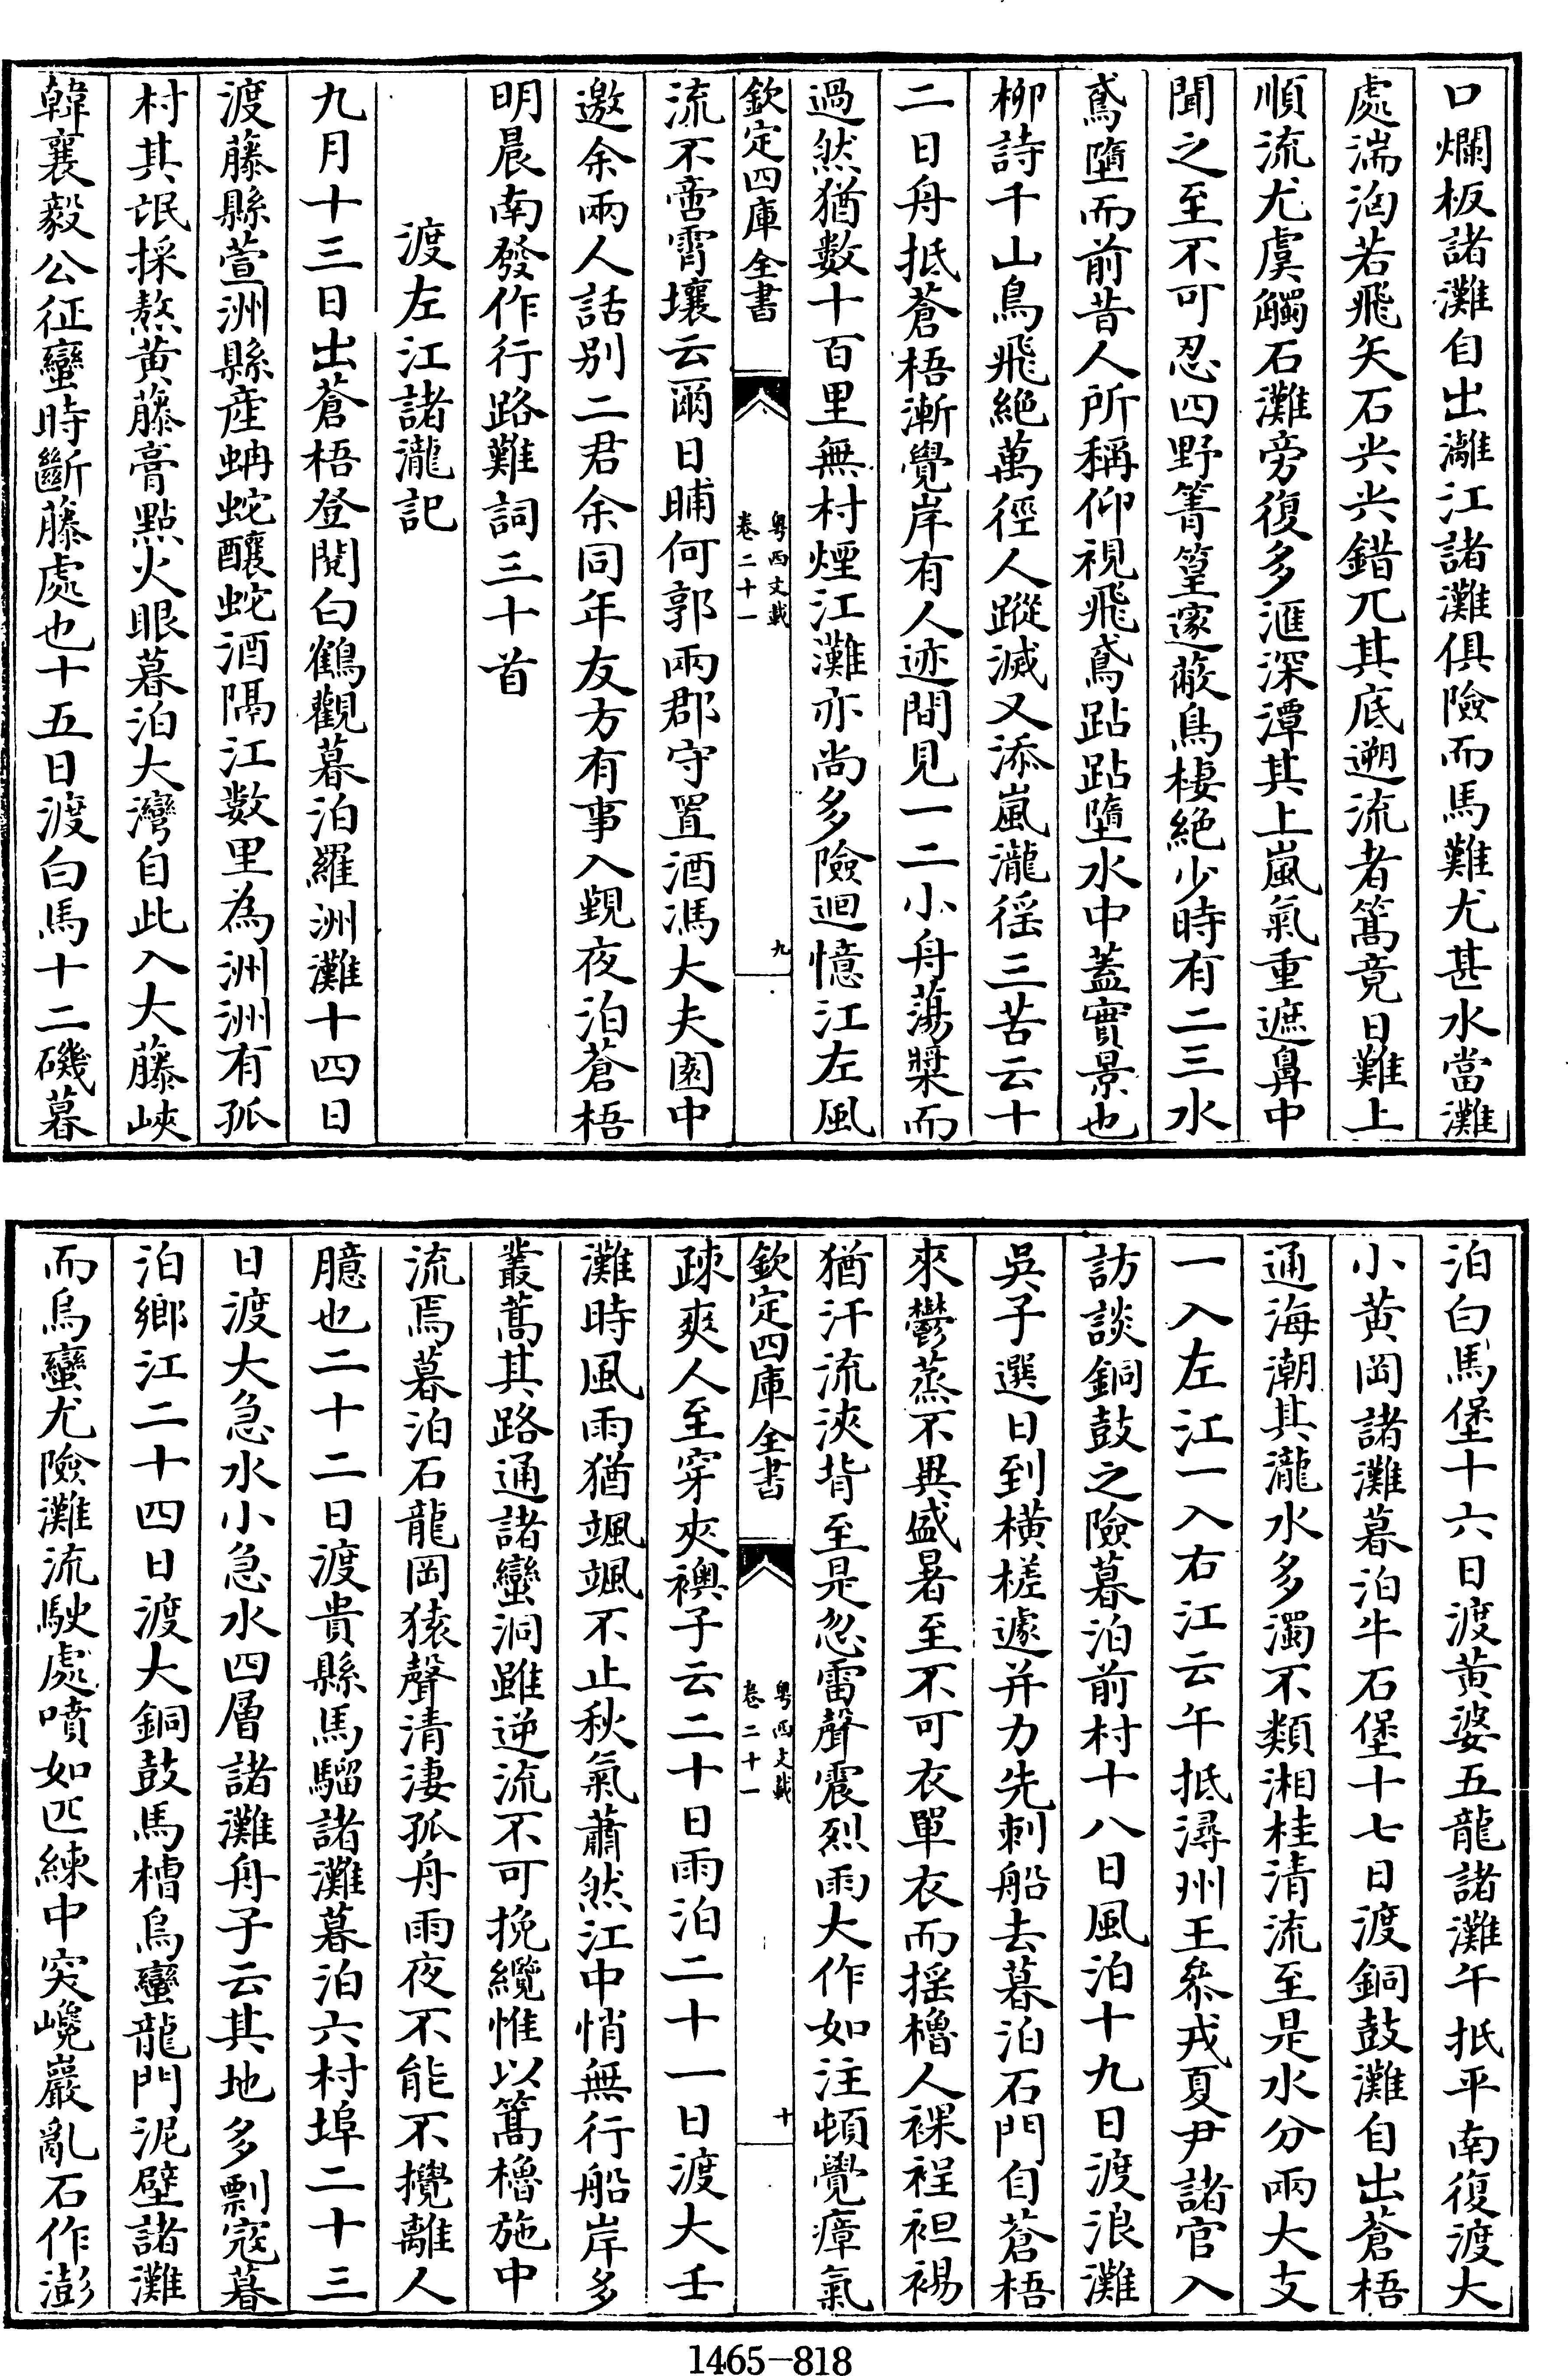 口爛板諸灘自出灕江諸灘俱險而馬難尤甚水當灘
處湍洶若飛矢石㠯㠯錯兀其底遡流者篙竟日難上
順流尤虞觸石灘旁復多滙深潭其上嵐氣重遮鼻中
聞之至不可忍四野箐篁邃蔽鳥棲絶少時有二三水
鳶墮而前昔人所稱仰視飛鳶跕跕墮水中蓋實景也
栁詩千山鳥飛絶萬徑人蹤滅又添嵐瀧徭三苦云十
二日舟抵蒼梧漸覺岸有人迹間見一二小舟蕩槳而
過然猶數十百里無村煙江灘亦尚多險迴憶江左風
欽定四庫全書
粤西文載
卷二十一
九
流不啻霄壤云爾日晡何郭兩郡守置酒馮大夫園中
邀余兩人話别二君余同年友方有事入覲夜泊蒼梧
明晨南發作行路難詞三十首
渡左江諸瀧記
九月十三日出蒼梧登閱白鶴觀暮泊羅洲灘十四日
渡藤縣萱洲縣産蚺蛇釀蛇酒隔江数里為洲洲有孤
村其氓採熬黄藤膏點火眼暮泊大灣自此入大藤峽
韓襄毅公征蠻時斷藤處也十五日渡白馬十二磯暮
泊白馬堡十六日渡黄婆五龍諸灘午抵平南復渡大
小黄岡諸灘暮泊牛石堡十七日渡銅鼓灘自出蒼梧
通海潮其瀧水多濁不類湘桂清流至是水分兩大支
一入左江一入右江云午抵潯州王叅戎夏尹諸官入
訪談銅鼓之險暮泊前村十八日風泊十九日渡浪灘
吳子選日到横槎遽并力先刺船去暮泊石門自蒼梧
來鬱蒸不異盛暑至不可衣單衣而揺櫓人裸裎袒裼
猶汗流浹背至是忽雷聲震烈雨大作如注頓覺瘴氣
欽定四庫全書
粤西文載
卷二十一
十
疎爽人至穿夾襖子云二十日雨泊二十一日渡大壬
灘時風雨猶颯颯不止秋氣蕭然江中悄無行船岸多
叢蒿其路通諸蠻洞雖逆流不可挽纜惟以篙櫓施中
流焉暮泊石龍岡猿聲清淒孤舟雨夜不能不攪離人
臆也二十二日渡貴縣馬騮諸灘暮泊六村埠二十三
日渡大急水小急水四層諸灘舟子云其地多剽寇暮
泊鄉江二十四日渡大銅鼓馬槽烏蠻龍門泥壁諸灘
而烏蠻尤險灘流駛處噴如匹練中突巉巖亂石作澎
1465-818